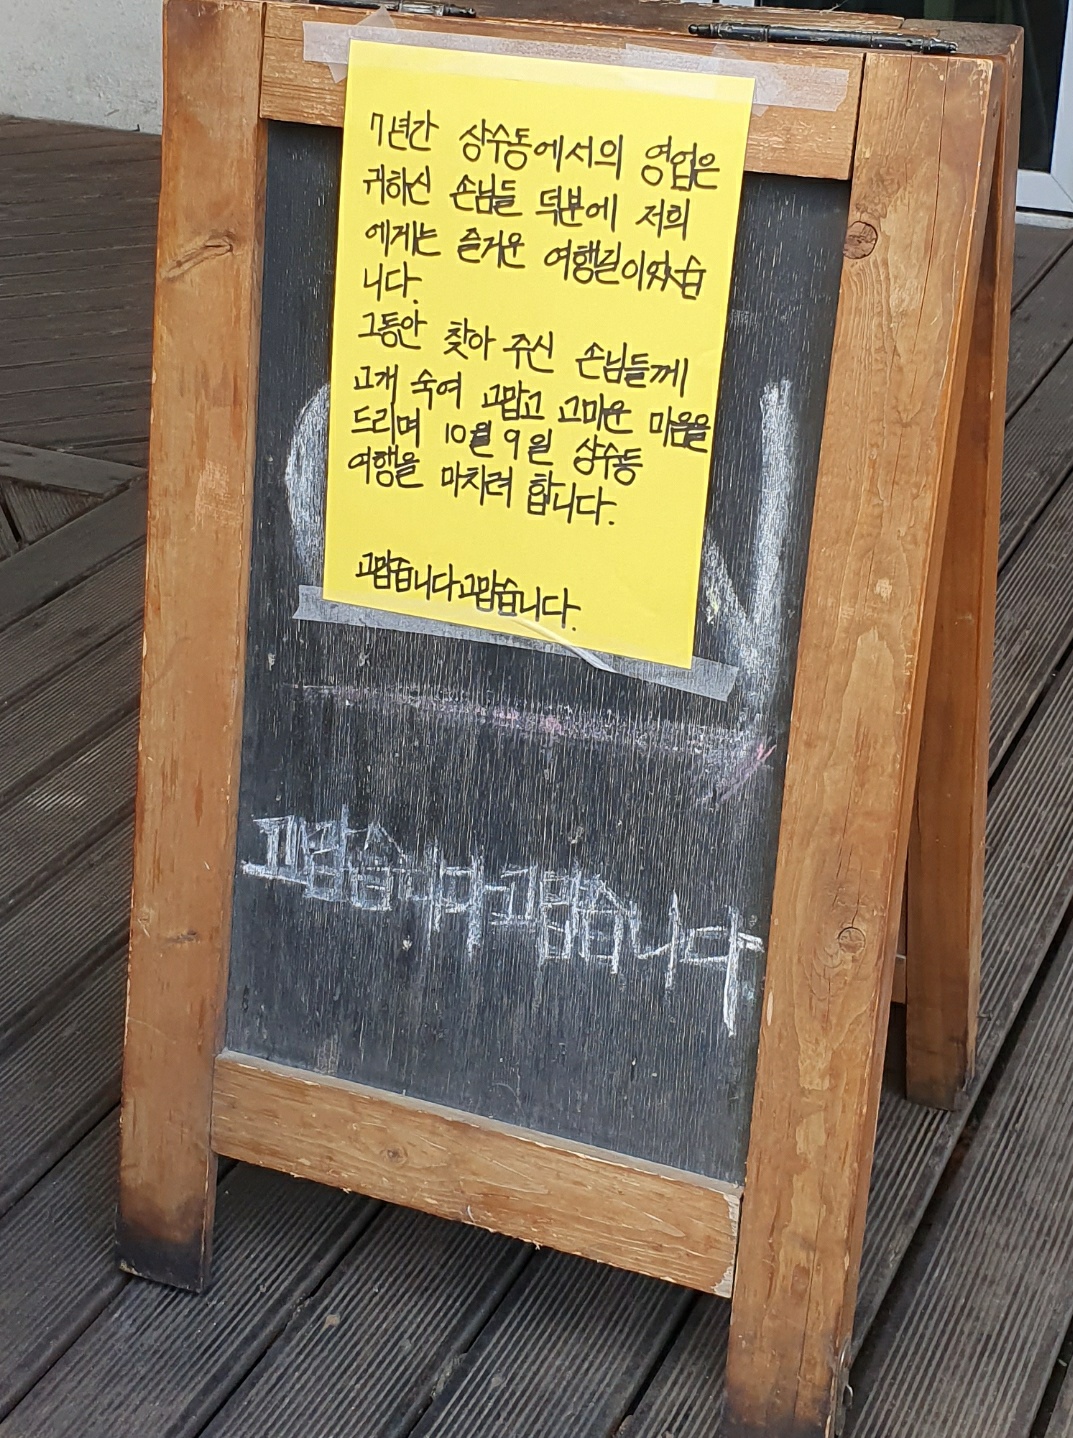 7년간 상수동에서의 영업은
귀하신 손님들 덕분에 저희
에게는 즐거운 여행길이었습
니다.
그동안 찾아 주신 손님들께
고개 숙여 고맙고 고마운 마음을
드리며 10월 9일 상수동
여행을 마치려 합니다.
고맙습니다고맙습니다.
고맙습니다고맙습니다